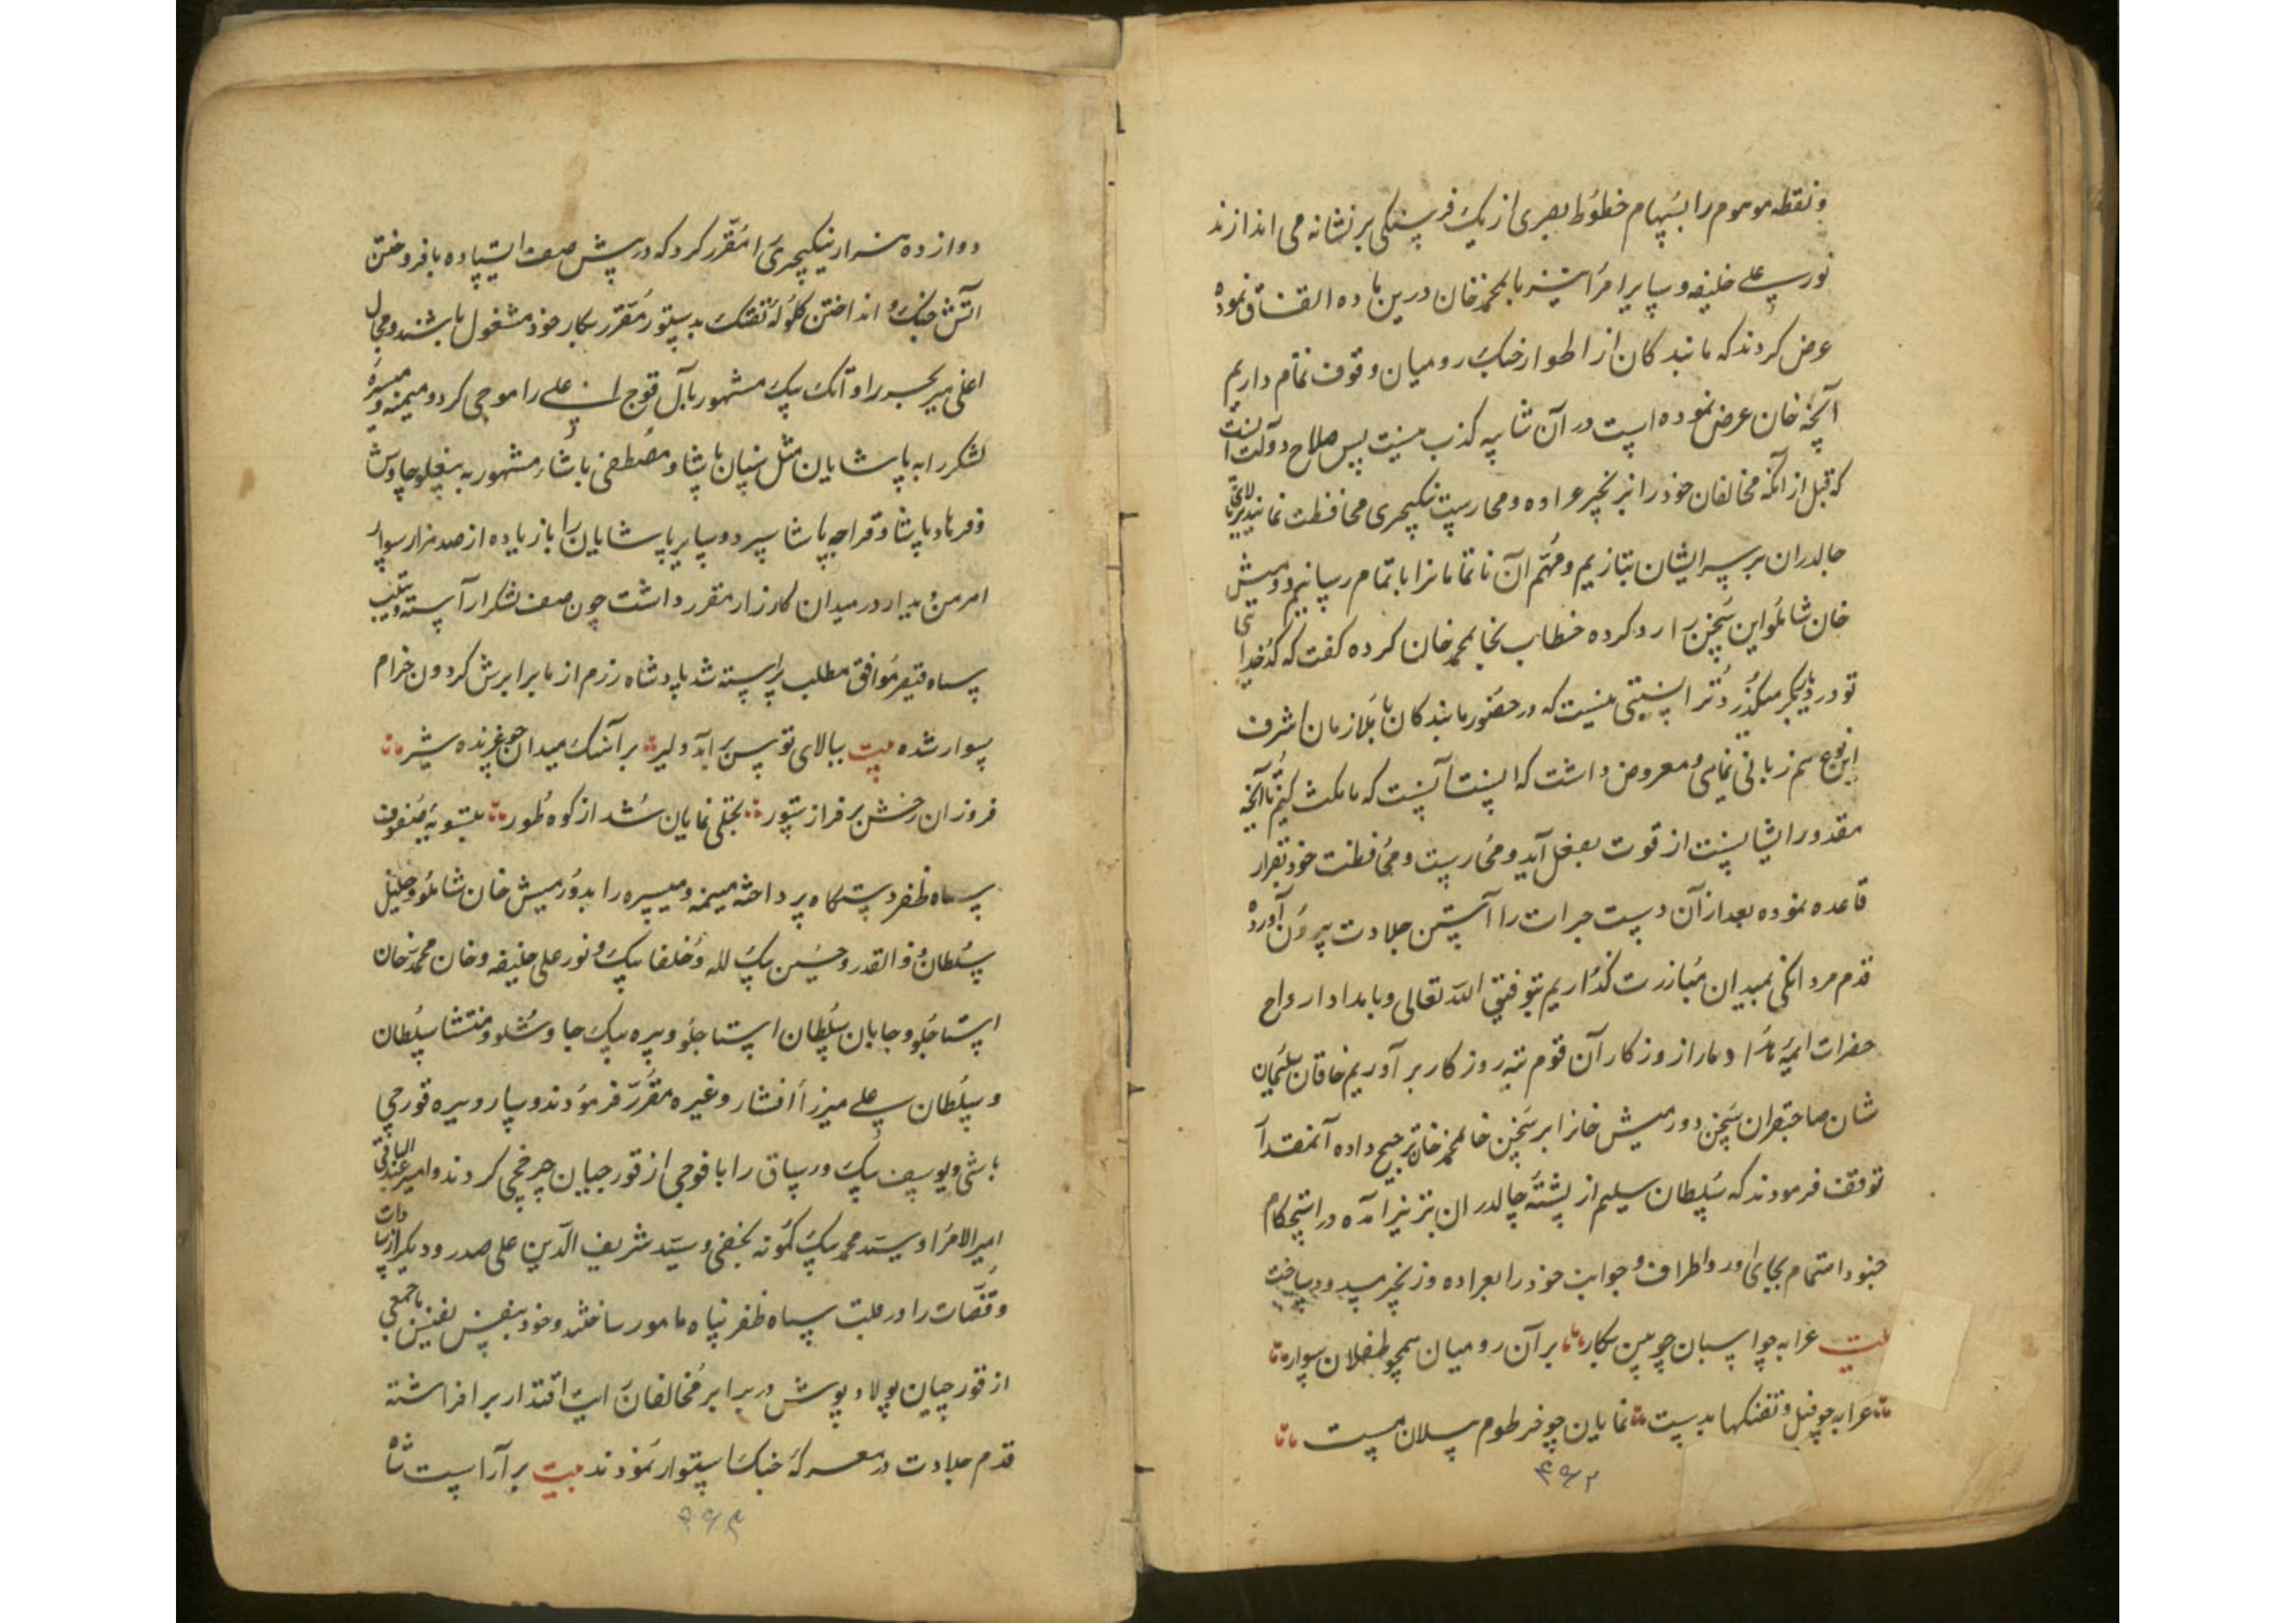 ونقطه موهوم را بسهام خطوط بصری از یک فرسنگی بر نشانه می اندازند
نور علی خلیفه و سایر امرا نیز با محمد خان درین باده اتفاق نموده
عرض کردند که ما بندکان از اطوار جنک رومیان وقوف تمام داریم
آنچه خان عرض نموده است در آن شایبه کذب نیست پس صلاح دولت آنست
که قبل از آنکه مخالفان خود را بزنجیر عراده ومحارست نیکیچری محافظت نمایند بر بالای
جالدران بر سر ایشان بتازیم ومهم آن ناتمامانرا باتمام رسانیم دورمیش
خان شاملو این سخن را رد کرده خطاب بخان محمد خان کرده کفت که کدخدائی
تو در دیاربکر میکذرد ترا نسبتی نیست که در حضور ما بندکان با ملازمان اشرف
این نوع هم زبانی نمایی ومعروض داشت که انسب آنست که ما مکث کنیم تا آنچه
مقدور ایشانست از قوت بفعل آید ومحارست ومحافظت خود بقرار
قاعده نموده بعد از آن دست جرات را از آستین جلادت بیرون آورده
قدم مردانکی بمیدان مبارزت کذاریم بتوفیق الله تعالی وبامداد ارواح
حضرات ائمه هدا دمار از روزکار آن قوم تبه روزکار بر آوریم خاقان سلیمان
شان صاحبقران سخن دورمیش خانرا بر سخن خان محمد خان ترجیح داده آنمقدار
توقف فرمودند که سلطان سلیم از پشته چالدران بزیر آمده در استحکام
جنود اهتمام بجای آورد واطراف وجوانب خود را بعراده وزنجیر مسدود ساخت
بیت عرابه چو اسبان چوبین بکار بر آن رومیان همچو طفلان سوار
عرابه چو فیل وتفنکها بدست نمایان چو خرطوم پیلان مست
۴۶۲
دوازده هزار نیکیچری را مقرر کرد که در پیش صف ایستاده بافروختن
آتش جنک و انداختن کلوله تفنک بدستور مقرر بکار خود مشغول باشند ومحال
اغلی میر بحر را و آنک بیک مشهور بآل قوج علی را موجی کرد ومیمنه ومیسره
لشکر را به پاشایان مثل سنان پاشا ومصطفی پاشا مشهور به بیغلو چاوش
وفرهاد پاشا وقراجه پاشا سپرد وسایر پاشایان را با زیاده از صد هزار سوار
اهرمن دیدار در میدان کارزار مقرر داشت چون صف لشکر آراسته وترتیب
سپاه قیصر موافق مطلب پیراسته شد پادشاه رزم آزما بر ابرش کردون خرام
سوار شده بیت ببالای توسن بر آمد دلیر بر آهنک میدان چو غرنده شیر
فروزان رخش بر فراز ستور تجلی نمایان شد از کوه طور بتسویه صفوف
سپاه ظفر دستکاه پرداخته میمنه ومیسره را بدورمیش خان شاملو وخلیل
سلطان ذوالقدر وحسین بیک لله وخلفا بیک ونور علی خلیفه وخان محمد خان
استاجلو وجایان سلطان استاجلو وپیره بیک چاوشلو ومنتشا سلطان
وسلطان علی میرزا افشار وغیره مقرر فرمودند وسارو پیره قورچی
باشی ویوسف بیک ورساق را با فوجی از قورجیان چرخچی کردند وامیر عبدالباقی
امیر الامرا وسید محمد بیک کمونه نجفی وسید شریف الدین علی صدر ودیکر از سادات
وقضات را در قلب سپاه ظفر پناه مامور ساختند وخود بنفس نفیس با جمعی
از قورچیان پولاد پوش در برابر مخالفان رایت اقتدار بر افراشته
قدم جلادت در معرکه جنک استوار نمودند بیت بر آراست شاه
۴۶۳